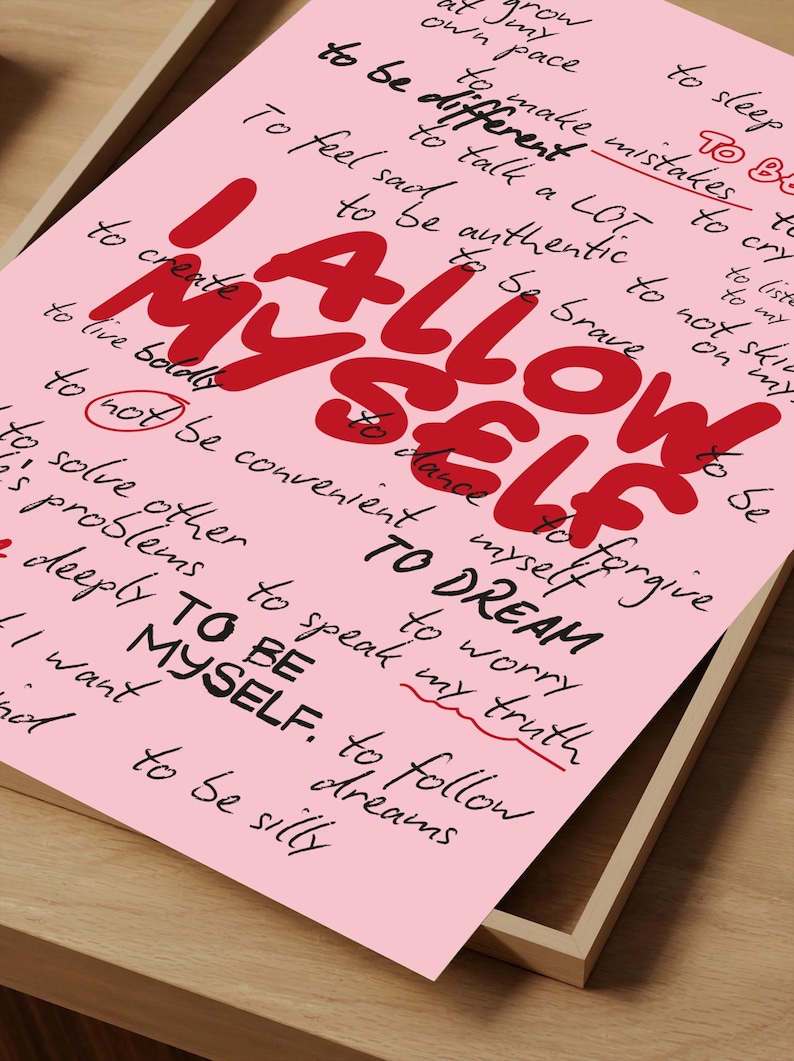 grow
at my
own pace
to sleep
to be different
to make mistakes
TO BE
To feel sad
to talk a LOT
to cry
to be authentic
to create
to be brave
to listen
to my
to not skip
on my
I ALLOW
MYSELF
to live boldly
to not be convenient
to dance
to be
to solve other
's problems
to forgive
myself
TO DREAM
deeply
to speak
my truth
to worry
TO BE
MYSELF.
I want
to follow
dreams
to be silly